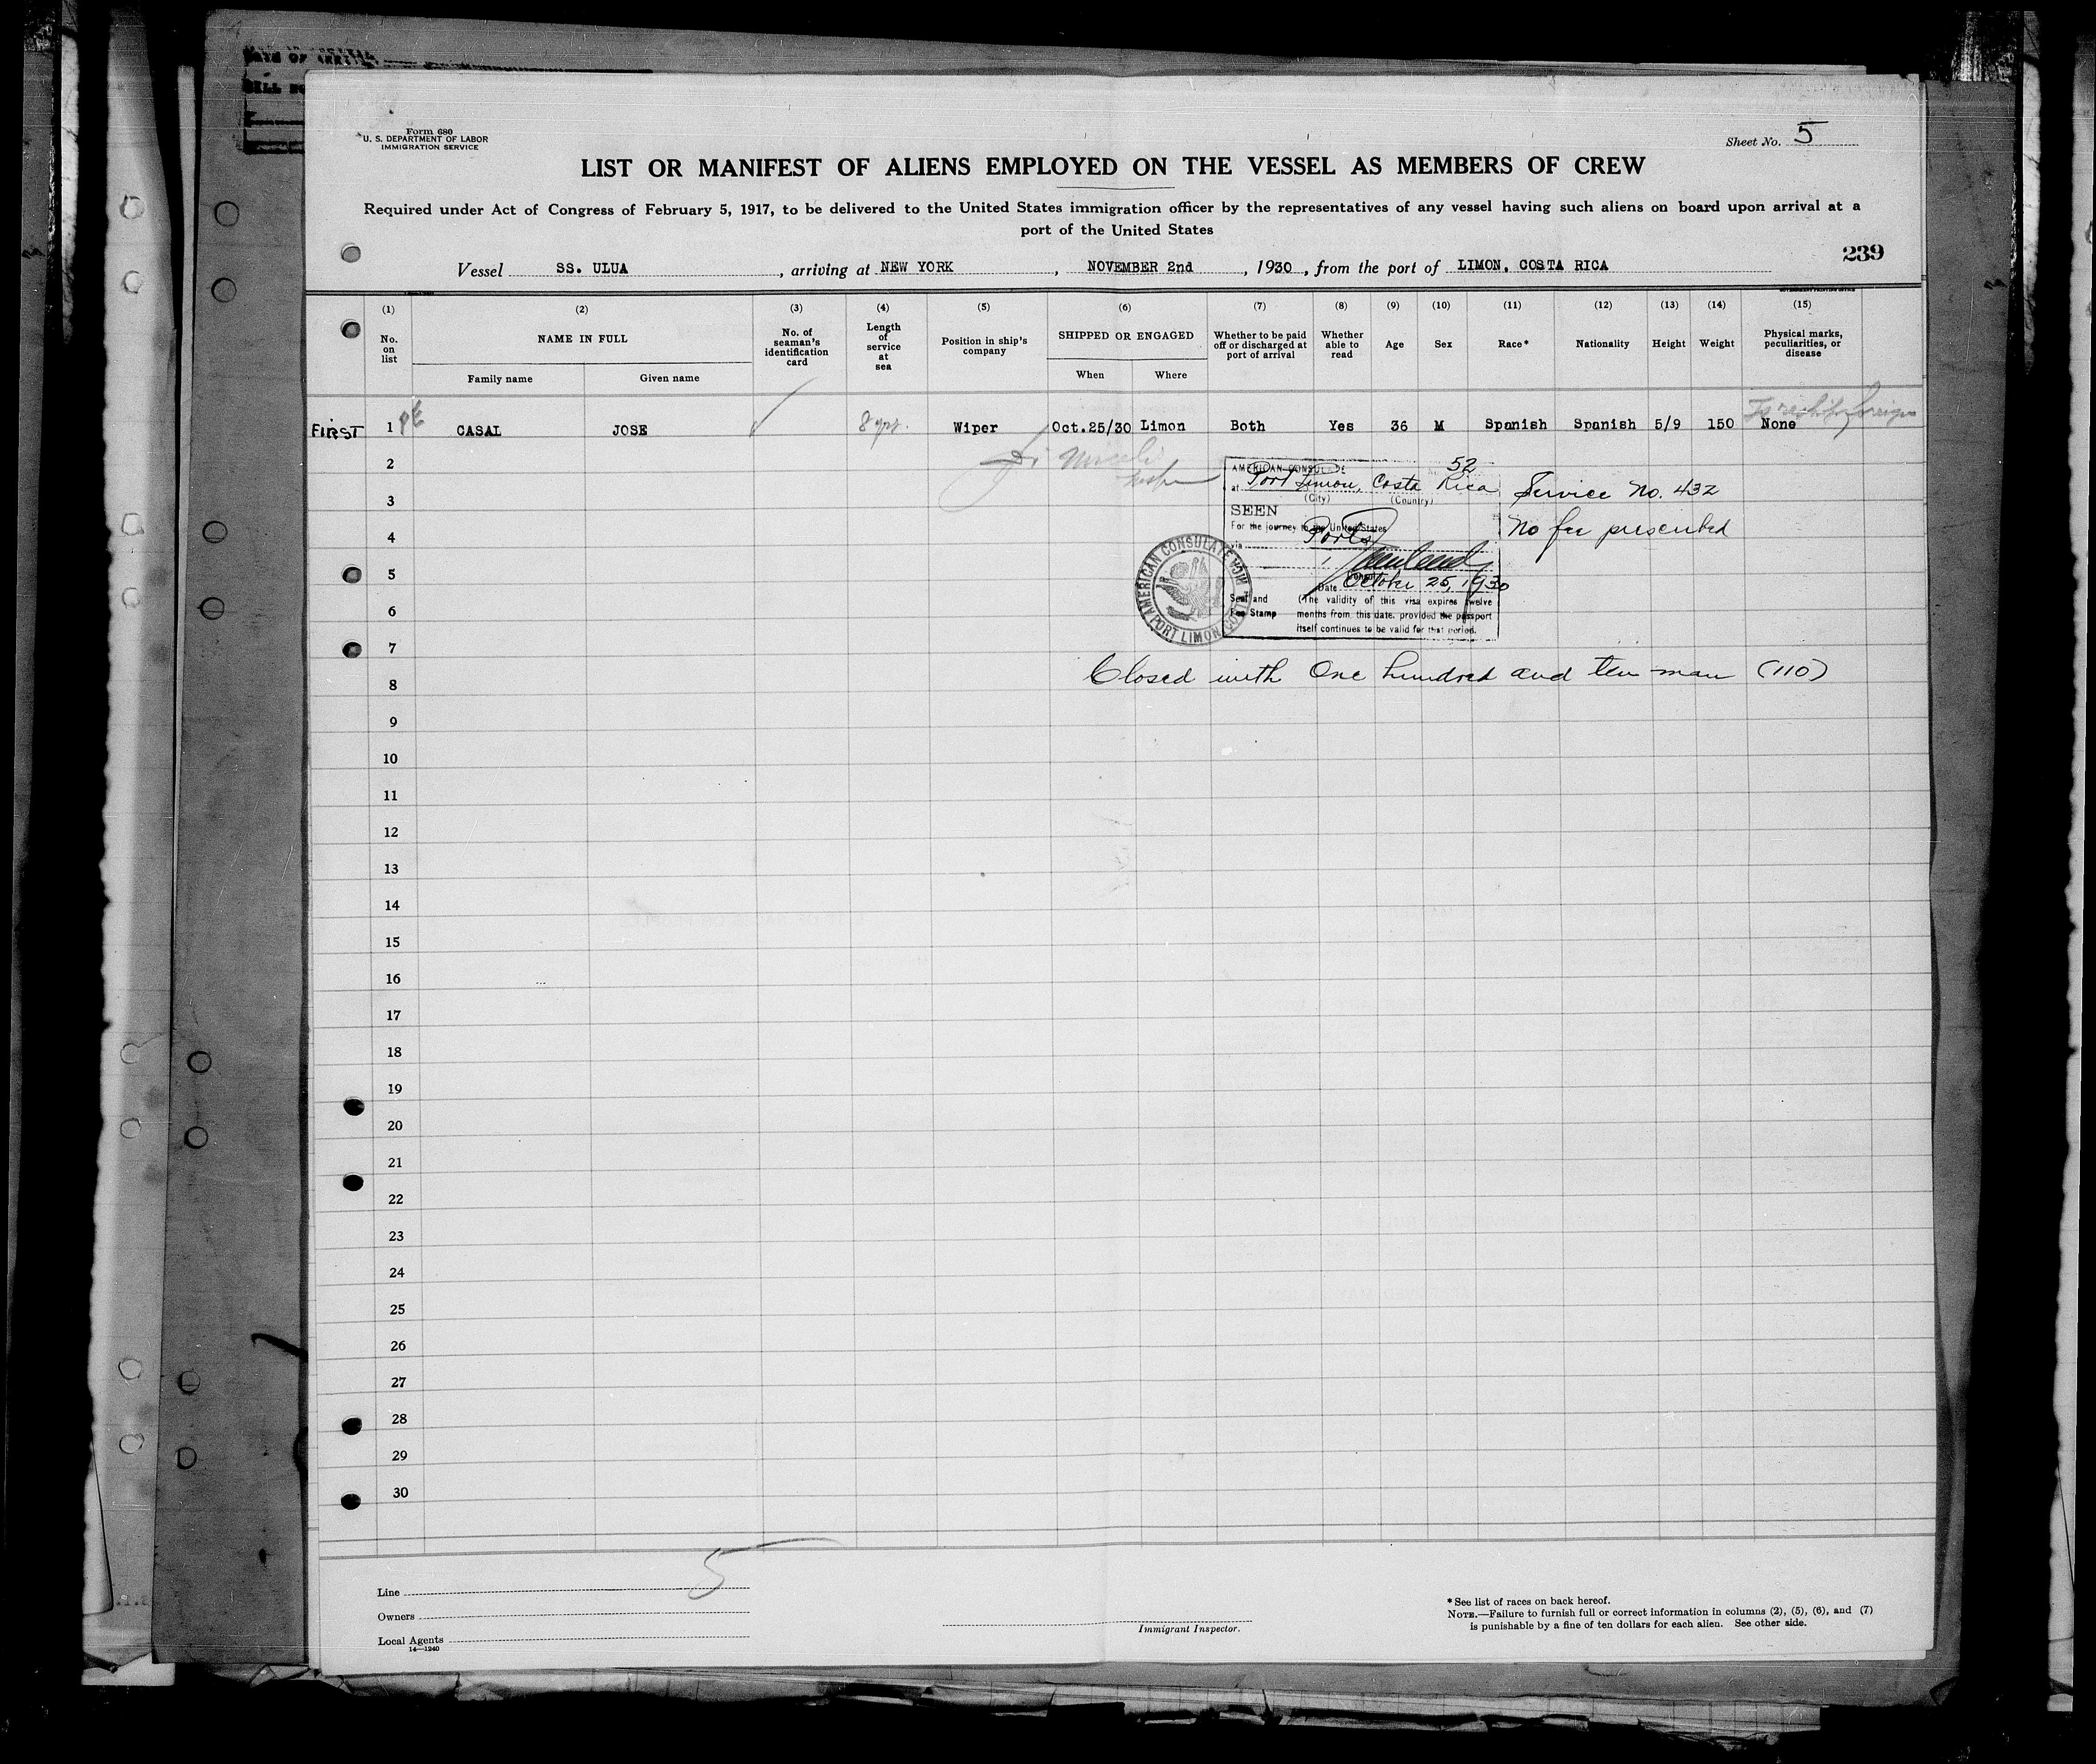 Form 680
U. S. DEPARTMENT OF LABOR
IMMIGRATION SERVICE
Sheet No. 5
LIST OR MANIFEST OF ALIENS EMPLOYED ON THE VESSEL AS MEMBERS OF CREW
Required under Act of Congress of February 5, 1917, to be delivered to the United States immigration officer by the representatives of any vessel having such aliens on board upon arrival at a
port of the United States
239
Vessel SS. ULUA, arriving at NEW YORK, NOVEMBER 2nd, 1930, from the port of LIMON, COSTA RICA
(1) (2) (3) (4) (5) (6) (7) (8) (9) (10) (11) (12) (13) (14) (15)
No. on list NAME IN FULL No. of seaman's identification card Length of service at sea Position in ship's company SHIPPED OR ENGAGED Whether to be paid off or discharged at port of arrival Whether able to read Age Sex Race* Nationality Height Weight Physical marks, peculiarities, or disease
Family name Given name When Where
FIRST 1 CASAL JOSE 8 yrs. Wiper Oct.25/30 Limon Both Yes 36 M Spanish Spanish 5/9 150 None
2
3
4
5
6
7
8
AMERICAN CONSULATE 52
at Port Limon, Costa Rica
(City) (Country)
Service No. 432
SEEN
For the journey to the United States
No fee prescribed
via Ports
Date October 25, 1930
Seal and Fee Stamp
(The validity of this visa expires twelve
months from this date, provided the passport
itself continues to be valid for that period.
AMERICAN CONSULATE PORT LIMON
Closed with One hundred and ten man (110)
9
10
11
12
13
14
15
16
17
18
19
20
21
22
23
24
25
26
27
28
29
30
5
Line
Owners
Local Agents
14—1240
Immigrant Inspector.
* See list of races on back hereof.
NOTE.—Failure to furnish full or correct information in columns (2), (5), (6), and (7)
is punishable by a fine of ten dollars for each alien. See other side.